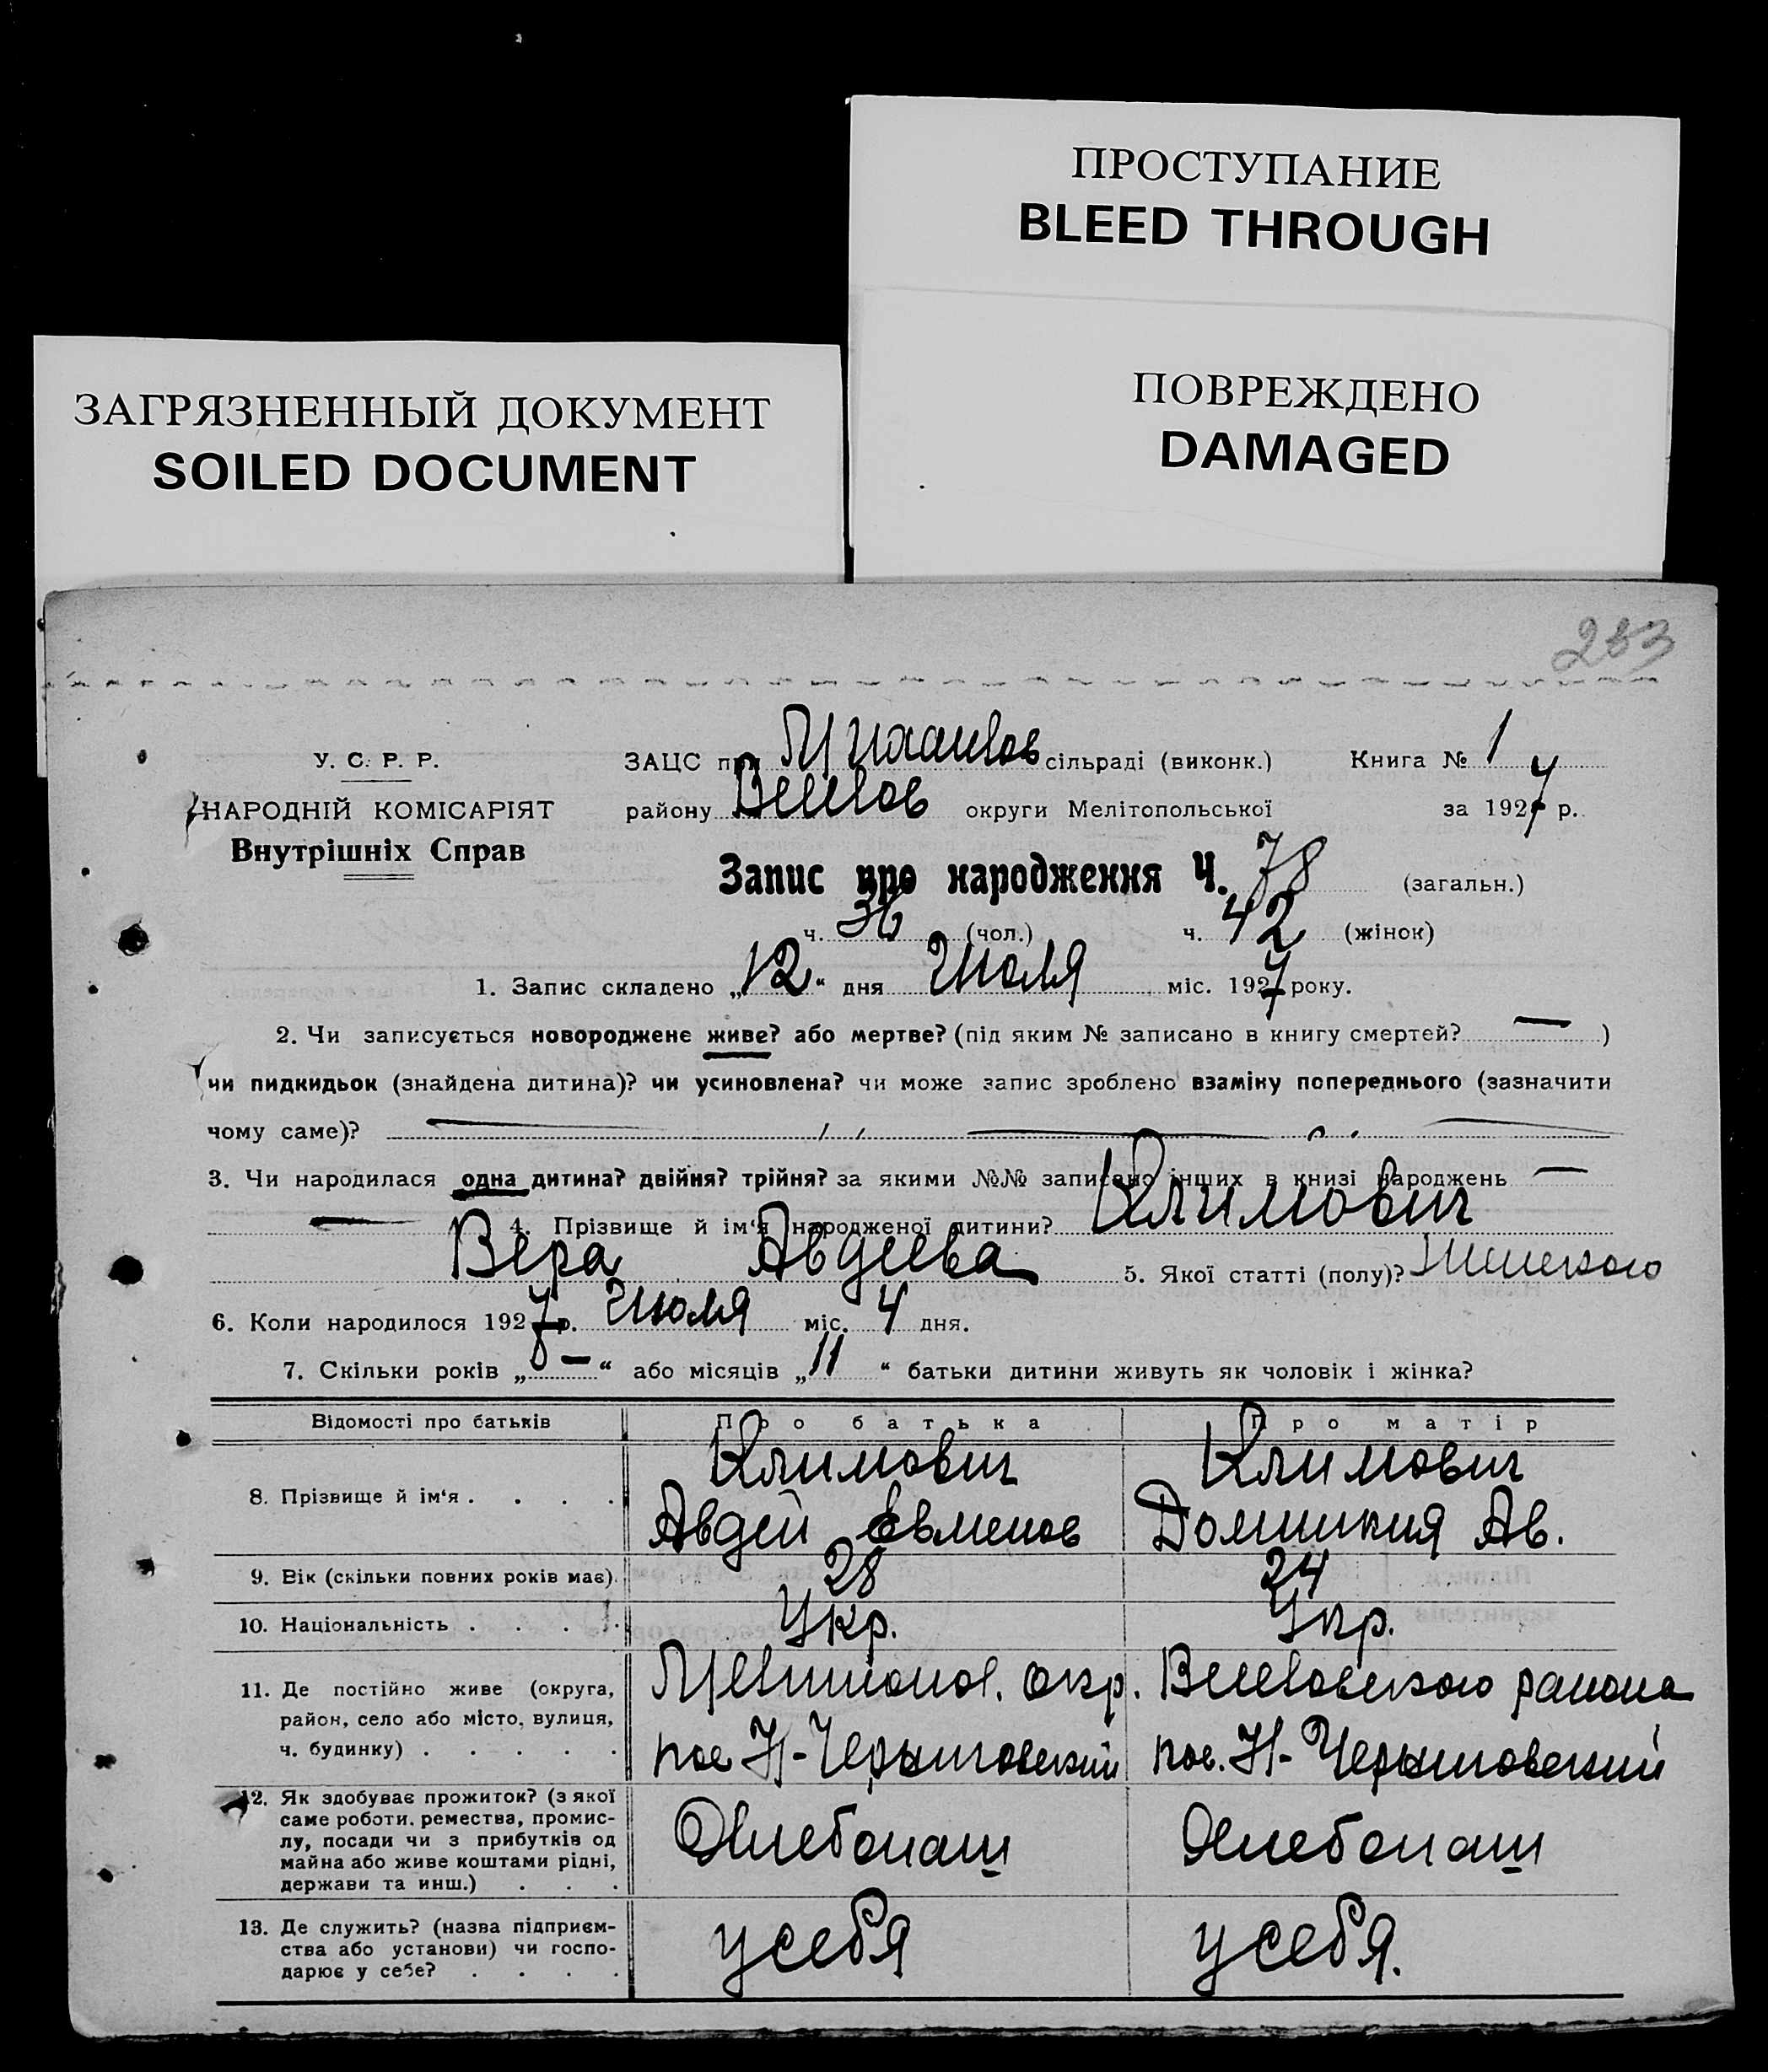 ПРОСТУПАНИЕ
BLEED THROUGH
ПОВРЕЖДЕНО
DAMAGED
ЗАГРЯЗНЕННЫЙ ДОКУМЕНТ
SOILED DOCUMENT
У. С. Р. Р.
НАРОДНІЙ КОМІСАРІЯТ
Внутрішніх Справ
ЗАЦС при сільраді (виконк.) Книга № 1
району Веселов округи Мелітопольської за 1927 р.
Запис про народження Ч. 78 (загальн.)
ч. 36 (чол.) ч. 42 (жінок)
1. Запис складено „12“ дня Июля міс. 1927 року.
2. Чи записується новороджене живе? або мертве? (під яким № записано в книгу смертей? — )
чи пидкидьок (знайдена дитина)? чи усиновлена? чи може запис зроблено взаміну попереднього (зазначити
чому саме)?
3. Чи народилася одна дитина? двійня? трійня? за якими №№ записано інших в книзі народжень —
— 4. Прізвище й ім‘я народженої дитини? Климович
Вера Авдеева 5. Якої статті (полу)? Женского
6. Коли народилося 1927 р. Июля міс. 4 дня.
7. Скільки років „ — “ або місяців „11“ батьки дитини живуть як чоловік і жінка?
Відомості про батьків Про батька Про матір
8. Прізвище й ім‘я . . . . Климович Климович
Авдей Евменов Домникия Ав.
9. Вік (скільки повних років має). 28 24
10. Національність . . . . Укр. Укр.
11. Де постійно живе (округа,
район, село або місто, вулиця,
ч. будинку) . . . . .
Мелитопол. окр. Веселовского района
пос Н-Черниговский пос. Н-Черниговский
12. Як здобуває прожиток? (з якої
саме роботи, ремества, промис-
лу, посади чи з прибутків од
майна або живе коштами рідні,
держави та инш.) . . .
Хлебопаш Хлебопаш
13. Де служить? (назва підприєм-
ства або установи) чи госпо-
дарює у себе? . . . .
у себя у себя.